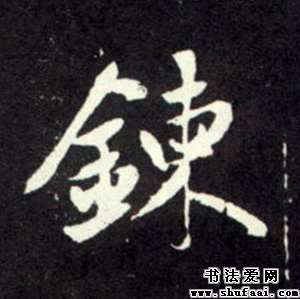 鍊
书法爱网
www.shufaai.com